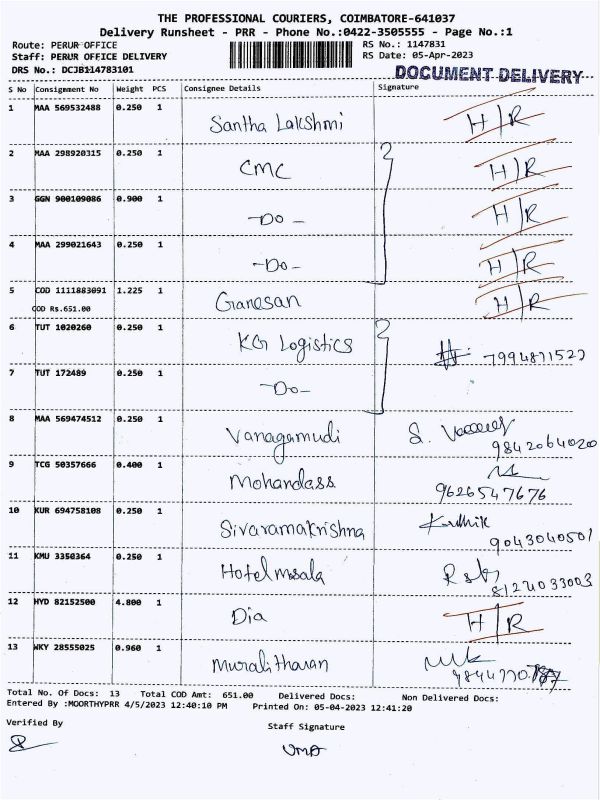 THE PROFESSIONAL COURIERS, COIMBATORE-641037
Delivery Runsheet - PRR - Phone No.:0422-3505555 - Page No.:1
Route: PERUR OFFICE RS No.: 1147831
Staff: PERUR OFFICE DELIVERY RS Date: 05-Apr-2023
DRS No.: DCJB114783101 DOCUMENT DELIVERY
S No Consignment No Weight PCS Consignee Details Signature
1 MAA 569532488 0.250 1 Santha Lakshmi H/R
2 MAA 298920315 0.250 1 CMC H/R
3 GGN 900109086 0.900 1 -Do- H/R
4 MAA 299021643 0.250 1 -Do- H/R
5 COD 1111883091 1.225 1 Ganesan H/R
COD Rs.651.00
6 TUT 1020260 0.250 1 KG Logistics
7 TUT 172489 0.250 1 -Do-
8 MAA 569474512 0.250 1 Vanagamudi S.
9842064020
9 TCG 50357666 0.400 1 Mohandass
9626547676
10 KUR 694758108 0.250 1 Sivaramakrishna Karthik
9043040501
11 KMU 3350364 0.250 1 Hotel masala
8124033003
12 HYD 82152500 4.800 1 Dia H/R
13 WKY 28555025 0.960 1 Muralitharan
Total No. Of Docs: 13 Total COD Amt: 651.00 Delivered Docs: Non Delivered Docs:
Entered By :MOORTHYPRR 4/5/2023 12:40:10 PM Printed On: 05-04-2023 12:41:20
Verified By Staff Signature
UMA